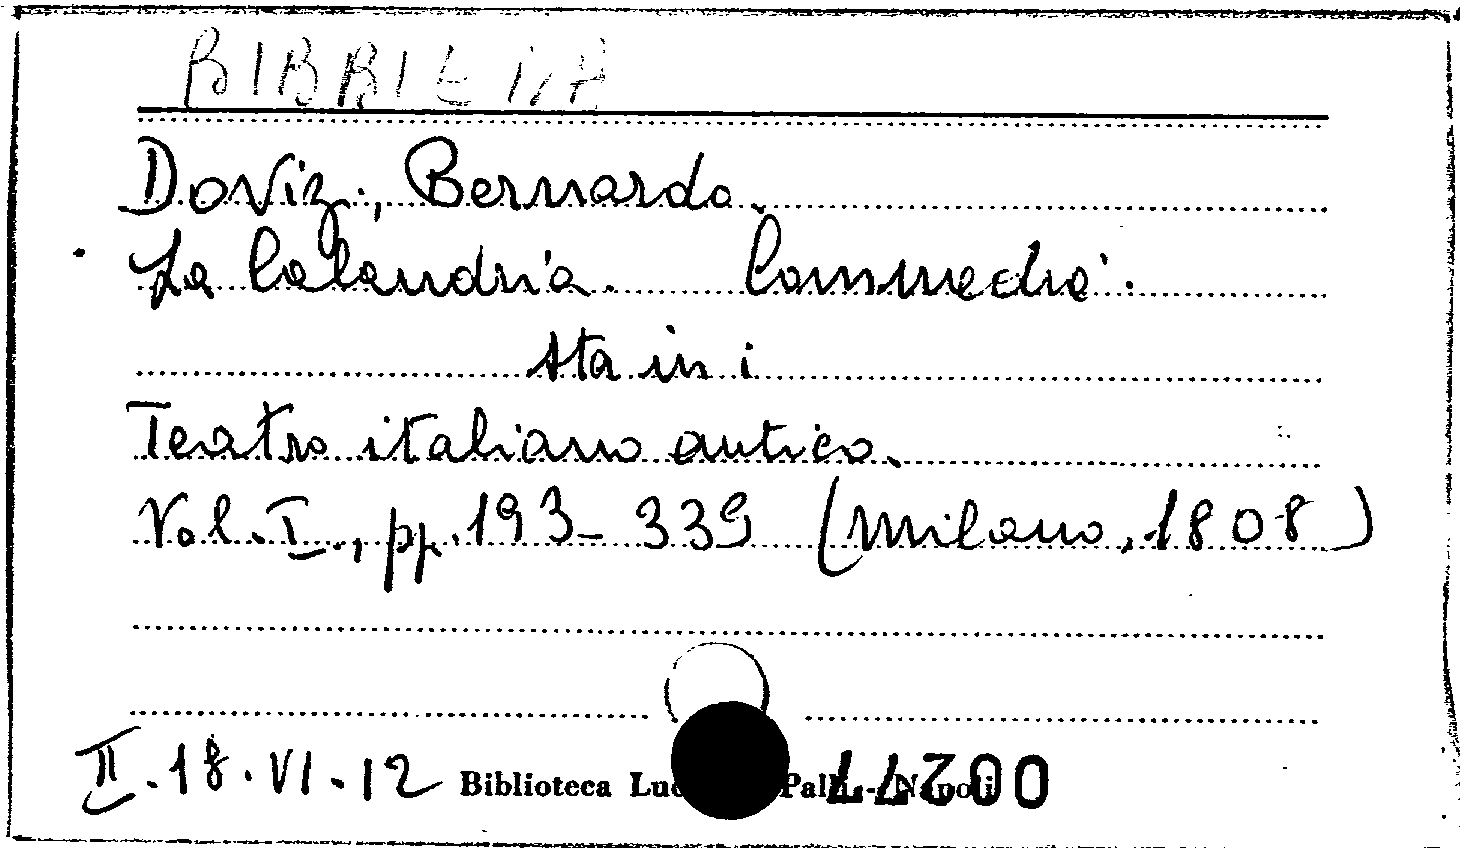 BIBBIENA
Doviz., Bernardo.
La Calandria. Commedia.
sta in:
Teatro italiano antico.
Vol. I., pp. 193-339 (Milano, 1808)
II.18.VI.12 Biblioteca Palli - Napoli 00277